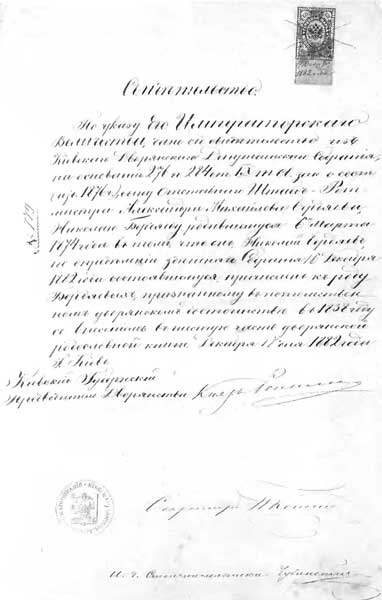 Свидѣтельство.
По указу Его Императорскаго
Величества, дано сіе свидѣтельство изъ
Кіевскаго Дворянскаго Депутатскаго Собранія,
на основаніи 276 и 284 ст. IX т. зак. о сост.
(изд. 1876 г.), сыну Отставнаго Штабъ-Рот-
мистра Александра Михайлова Бердяева,
Николаю Бердяеву родившемуся 6 Марта
1874 года въ томъ, что онъ Николай Бердяевъ,
по опредѣленію здѣшняго Собранія 16 Декабря
1882 года состоявшемуся, причисленъ къ роду
Бердяевыхъ, признанному въ потомствен-
номъ дворянскомъ достоинствѣ въ 18 году
со внесеніемъ въ шестую часть дворянской
родословной книги. Декабря дня 1882 года
г. Кіевъ
Кіевскій Губернскій
Предводитель Дворянства Князь
Секретарь
И. д.